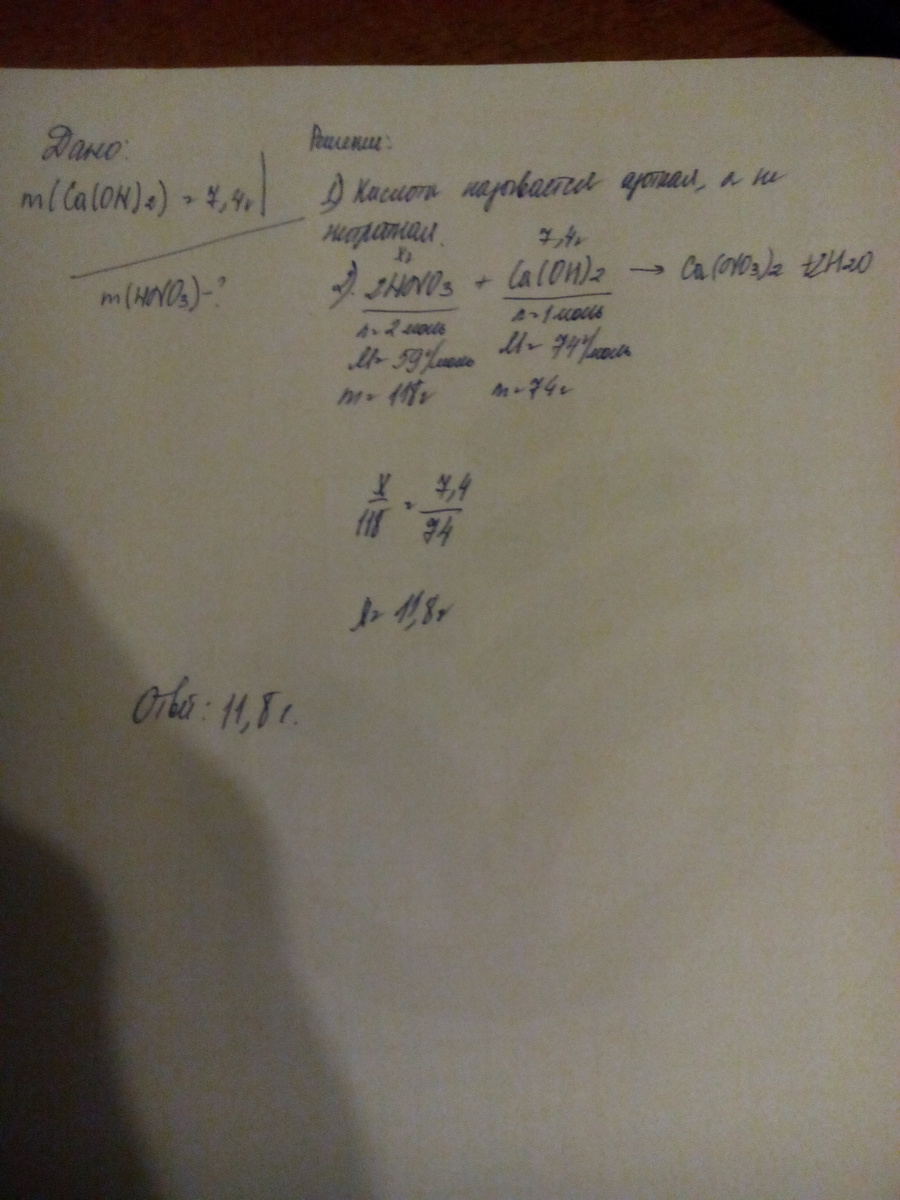 Дано:
m(Ca(OH)2) = 7,4г
m(HNO3)-?
Решение:
1) Кислота называется азотная, а не
нитратная.
xг 7,4г
2). 2HNO3 + Ca(OH)2 → Ca(NO3)2 + 2H2O
n=2 моль n=1 моль
M= 59г/моль M= 74г/моль
m= 118г m=74г
x/118 = 7,4/74
x= 11,8г
Ответ: 11,8г.